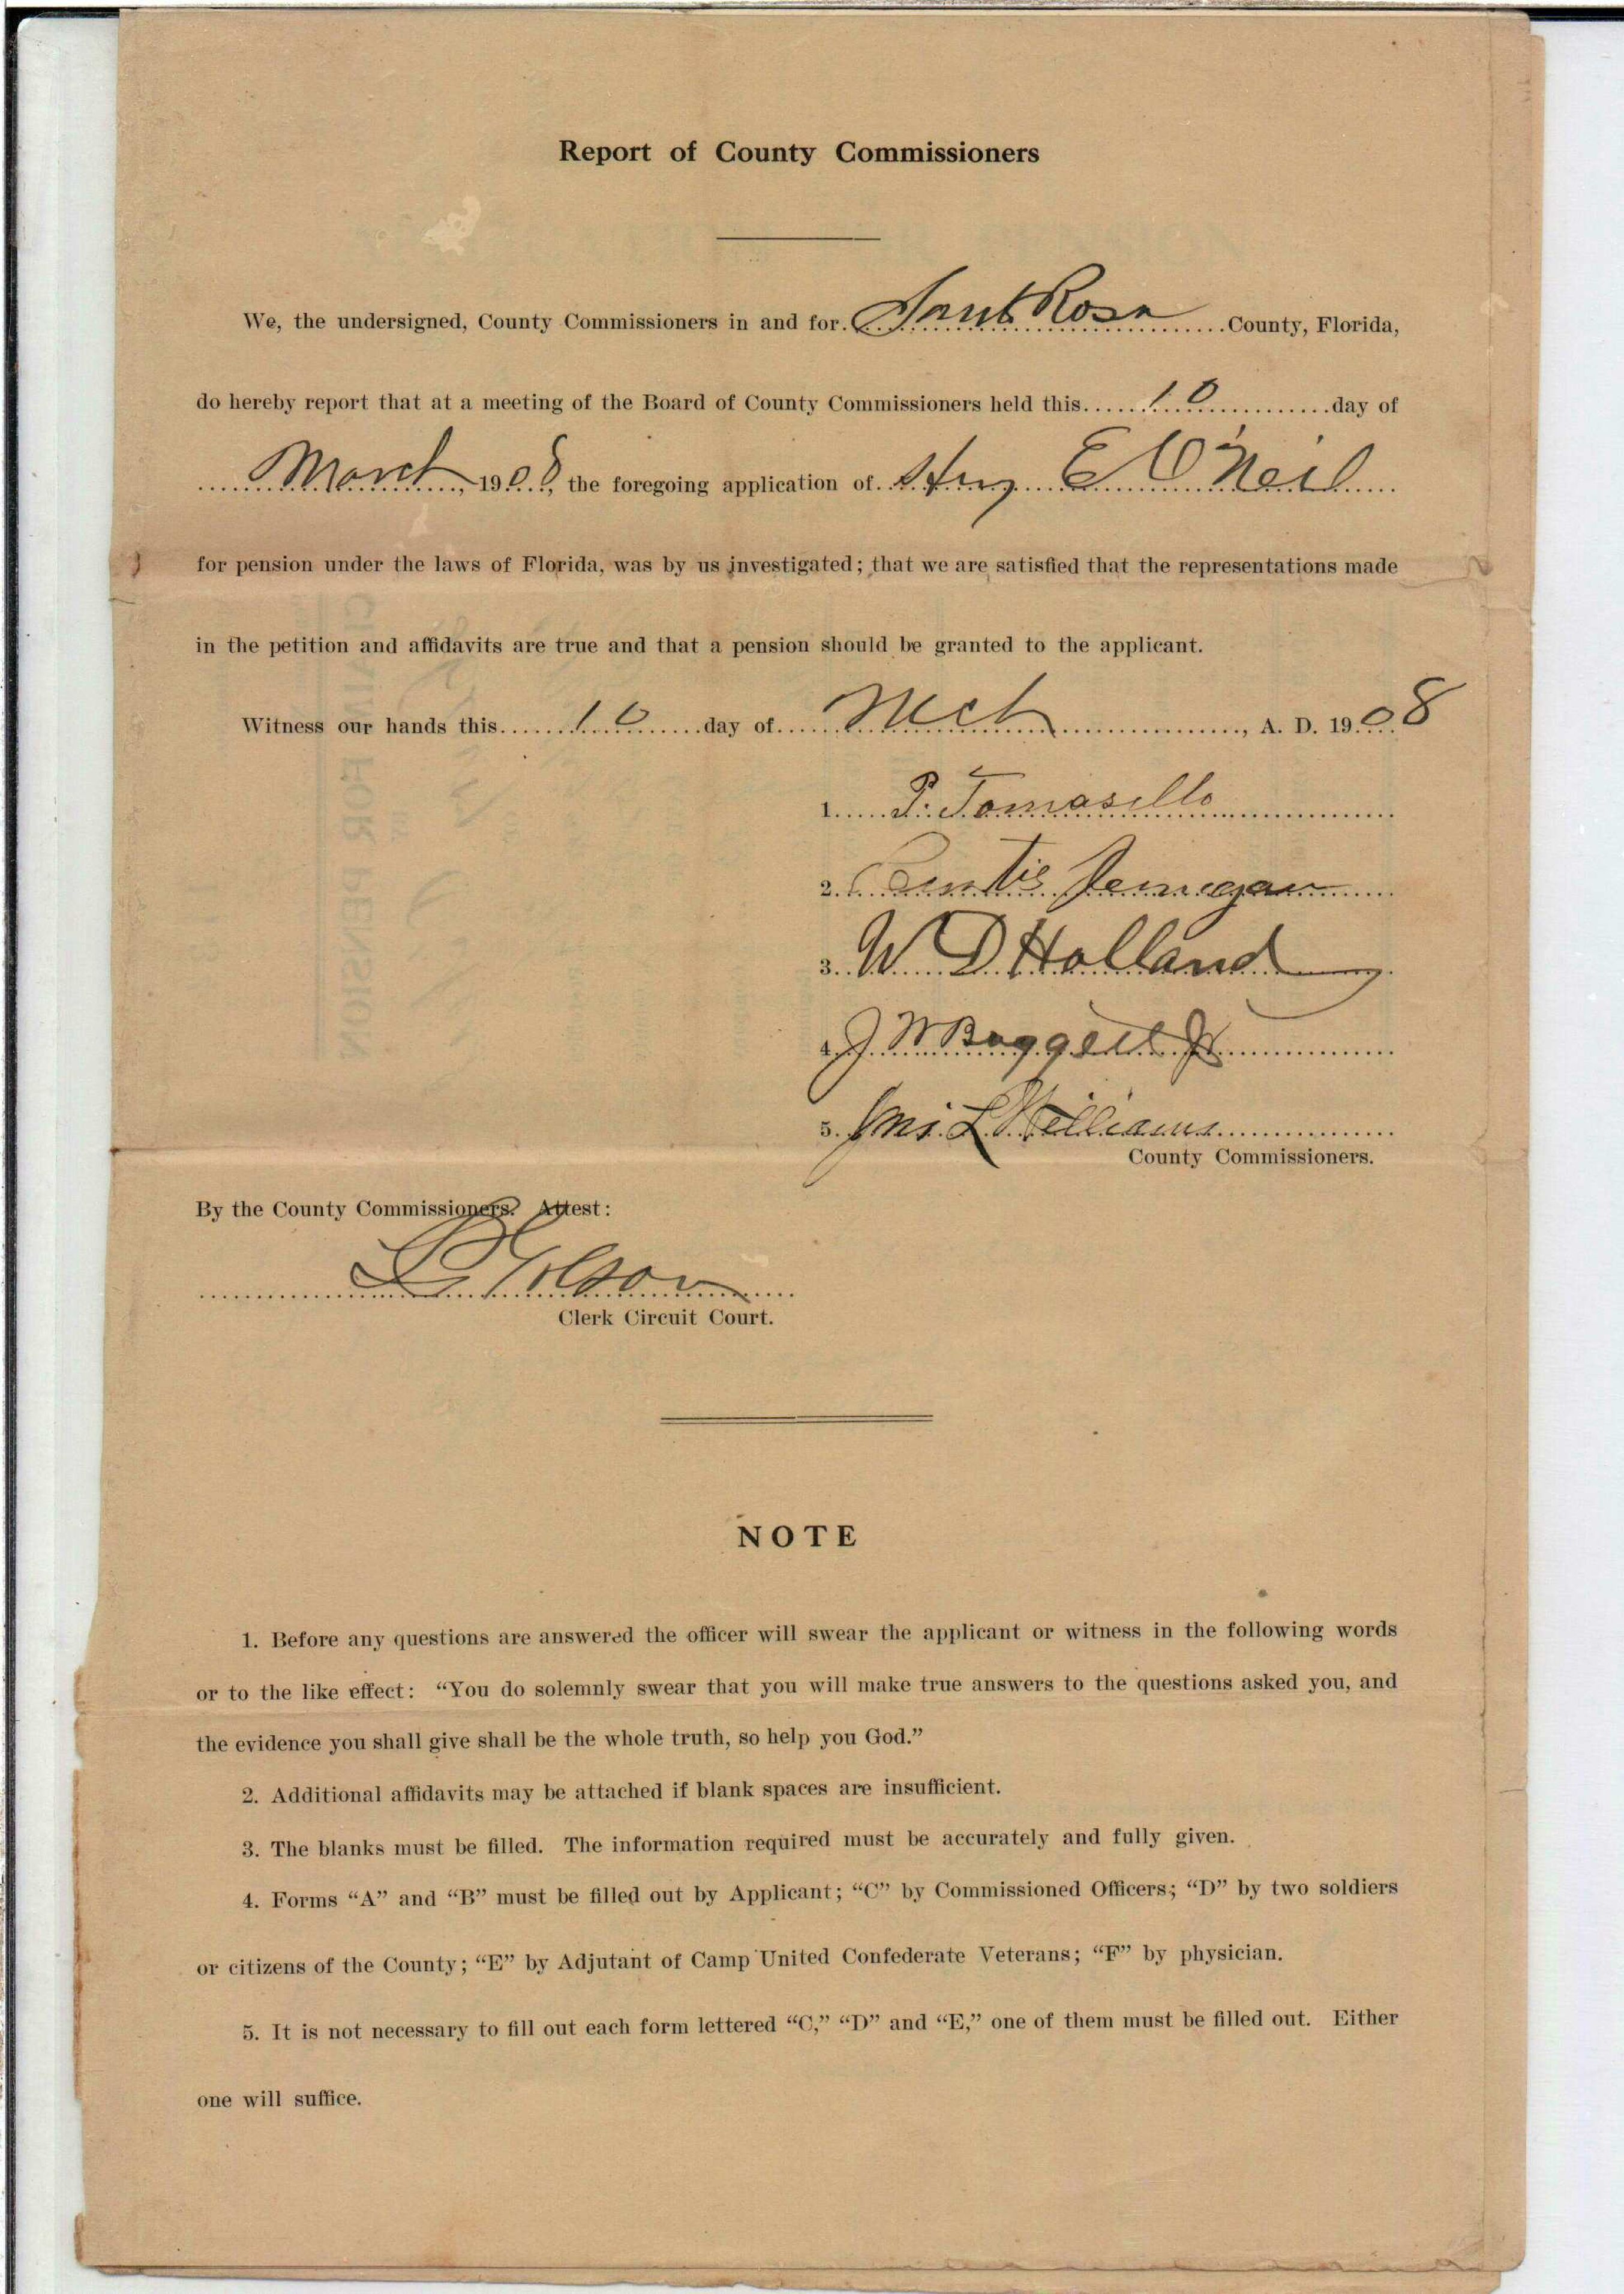 Report of County Commissioners
We, the undersigned, County Commissioners in and for Sant Rosa County, Florida,
do hereby report that at a meeting of the Board of County Commissioners held this 10 day of
March 1908, the foregoing application of E O'Neil
for pension under the laws of Florida, was by us investigated; that we are satisfied that the representations made
in the petition and affidavits are true and that a pension should be granted to the applicant.
Witness our hands this 10 day of Mch, A. D. 1908
1. P. Tomasello
2. Jernigan
3. W D Holland
4. J W Baggett Jr
5. L Williams
County Commissioners.
By the County Commissioners. Attest:
Clerk Circuit Court.
NOTE
1. Before any questions are answered the officer will swear the applicant or witness in the following words
or to the like effect: “You do solemnly swear that you will make true answers to the questions asked you, and
the evidence you shall give shall be the whole truth, so help you God.”
2. Additional affidavits may be attached if blank spaces are insufficient.
3. The blanks must be filled. The information required must be accurately and fully given.
4. Forms “A” and “B” must be filled out by Applicant; “C” by Commissioned Officers; “D” by two soldiers
or citizens of the County; “E” by Adjutant of Camp United Confederate Veterans; “F” by physician.
5. It is not necessary to fill out each form lettered “C,” “D” and “E,” one of them must be filled out. Either
one will suffice.